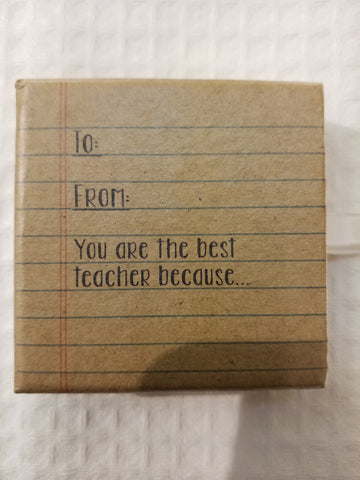 To:
From:
You are the best
teacher because...